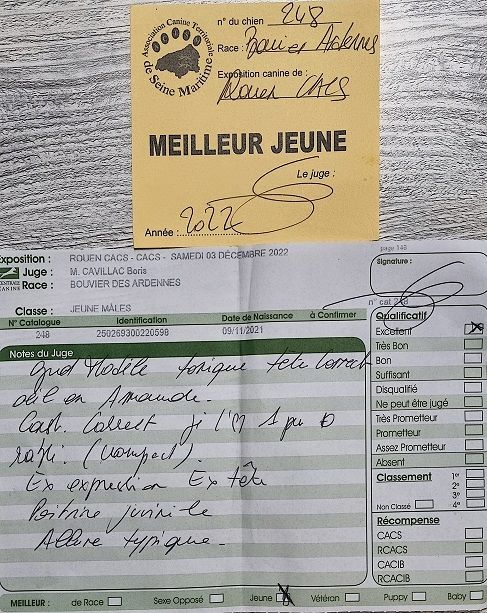 Association Canine Territoriale
de Seine Maritime
n° du chien : 248
Race : Bouvier Ardennes
Exposition canine de :
Rouen CACS
MEILLEUR JEUNE
Le juge :
Année : 2022
page 148
Exposition : ROUEN CACS - CACS - SAMEDI 03 DÉCEMBRE 2022
Juge : M. CAVILLAC Boris
Race : BOUVIER DES ARDENNES
CENTRALE
CANINE
Signature :
Classe : JEUNE MÂLES
n° cat 248
N° Catalogue Identification Date de Naissance à Confirmer
248 250269300220598 09/11/2021
Notes du Juge
grand Modèle tonique tête correct
œil en Amande.
Correct je l'
(compact).
Ex expression Ex tête
Poitrine juvénile
Allure typique.
Qualificatif
Excellent X
Très Bon
Bon
Suffisant
Disqualifié
Ne peut être jugé
Très Prometteur
Prometteur
Assez Prometteur
Absent
Classement 1er
2e
3e
Non Classé 4e
Récompense
CACS
RCACS
CACIB
RCACIB
MEILLEUR : de Race Sexe Opposé Jeune X Vétéran Puppy Baby